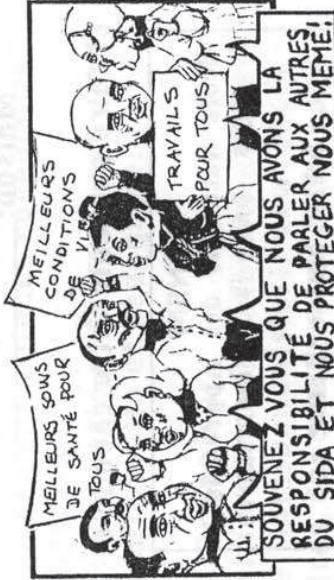 MEILLEURS SOUS
DE SANTÉ POUR
TOUS
MEILLEURS
CONDITIONS
DE VIE
TRAVAILS
POUR TOUS
SOUVENEZ VOUS QUE NOUS AVONS LA
RESPONSIBILITÉ DE PARLER AUX AUTRES
DU SIDA ET NOUS PROTEGER NOUS MEME!